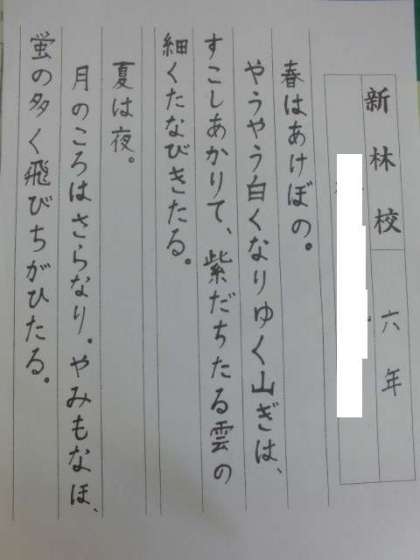 新林校
六年
春はあけぼの。
やうやう白くなりゆく山ぎは、
すこしあかりて、紫だちたる雲の
細くたなびきたる。
夏は夜。
月のころはさらなり。やみもなほ、
蛍の多く飛びちがひたる。